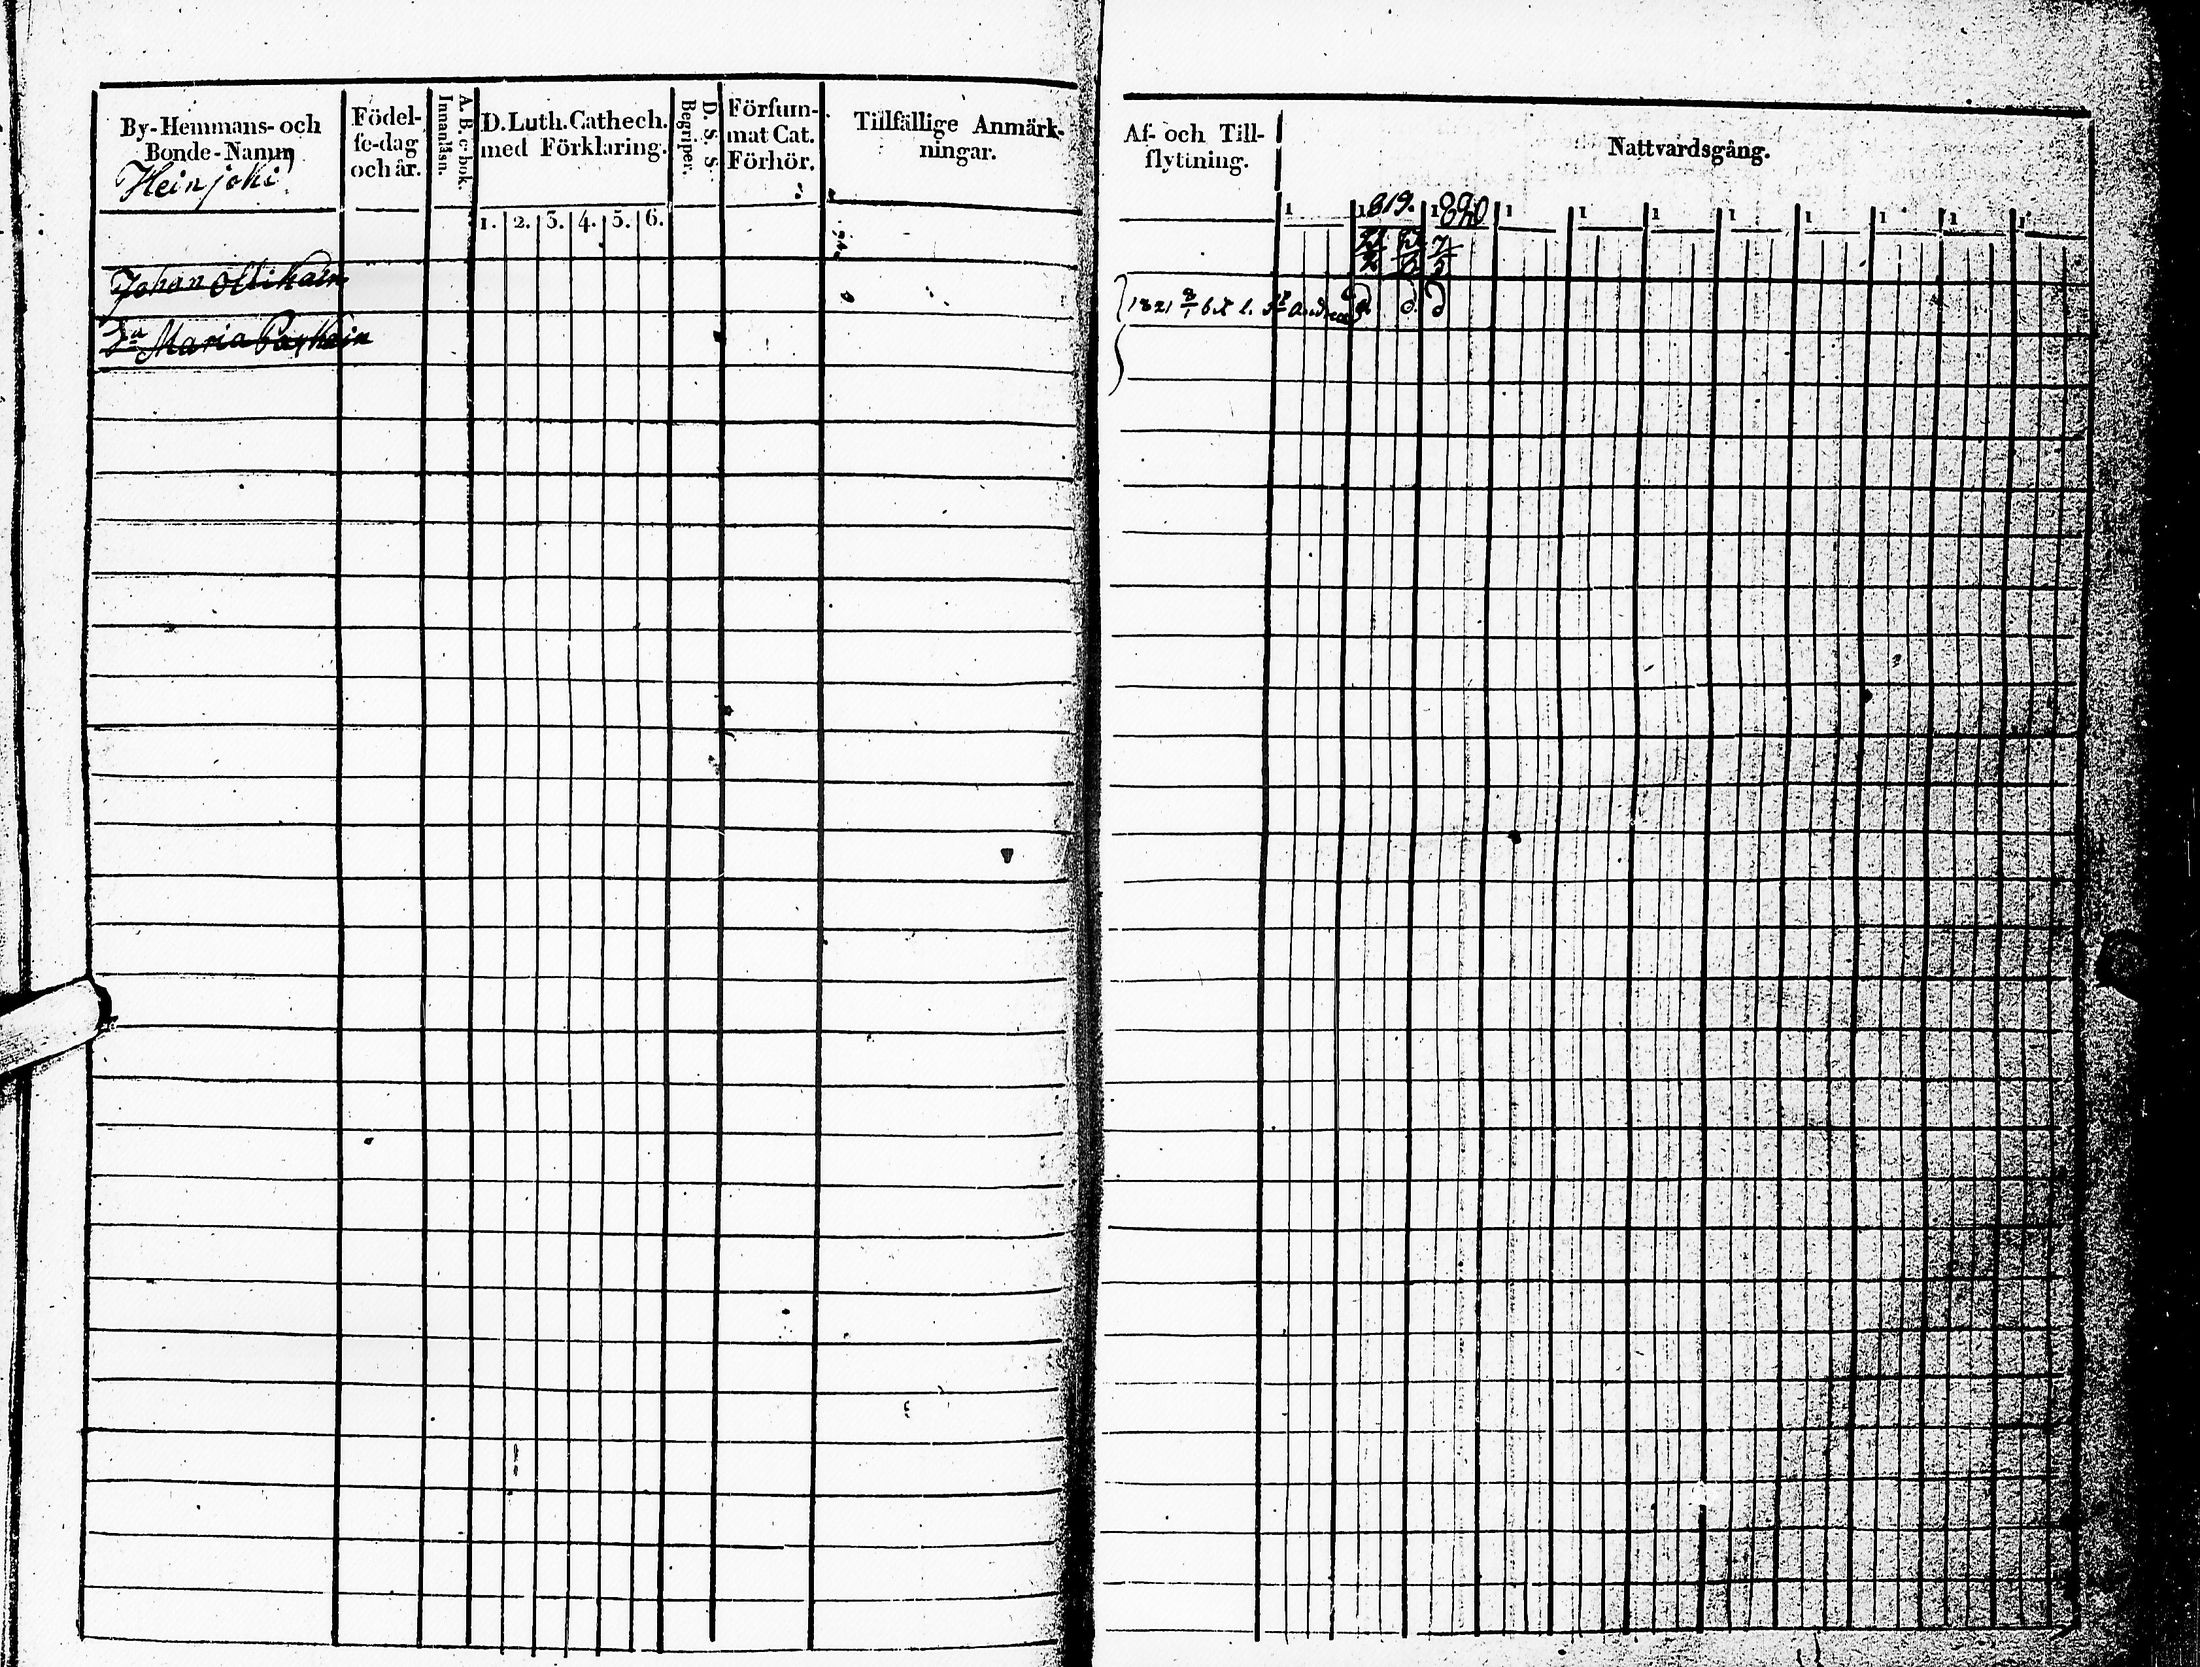 By-Hemmans- och
Bonde-Namn
Heinjoki
Födel-
se-dag
och år.
A. B. c-bok.
Innanläsn.
D. Luth. Cathech.
med Förklaring.
1. 2. 3. 4. 5. 6.
D. S. S.
Begriper.
Försum-
mat Cat.
Förhör.
Tillfällige Anmärk-
ningar.
Johan Ollikain
Maria
Af- och Till-
flyttning.
Nattvardsgång.
1 1819. 1820 1 1 1 1 1 1 1 1
1821